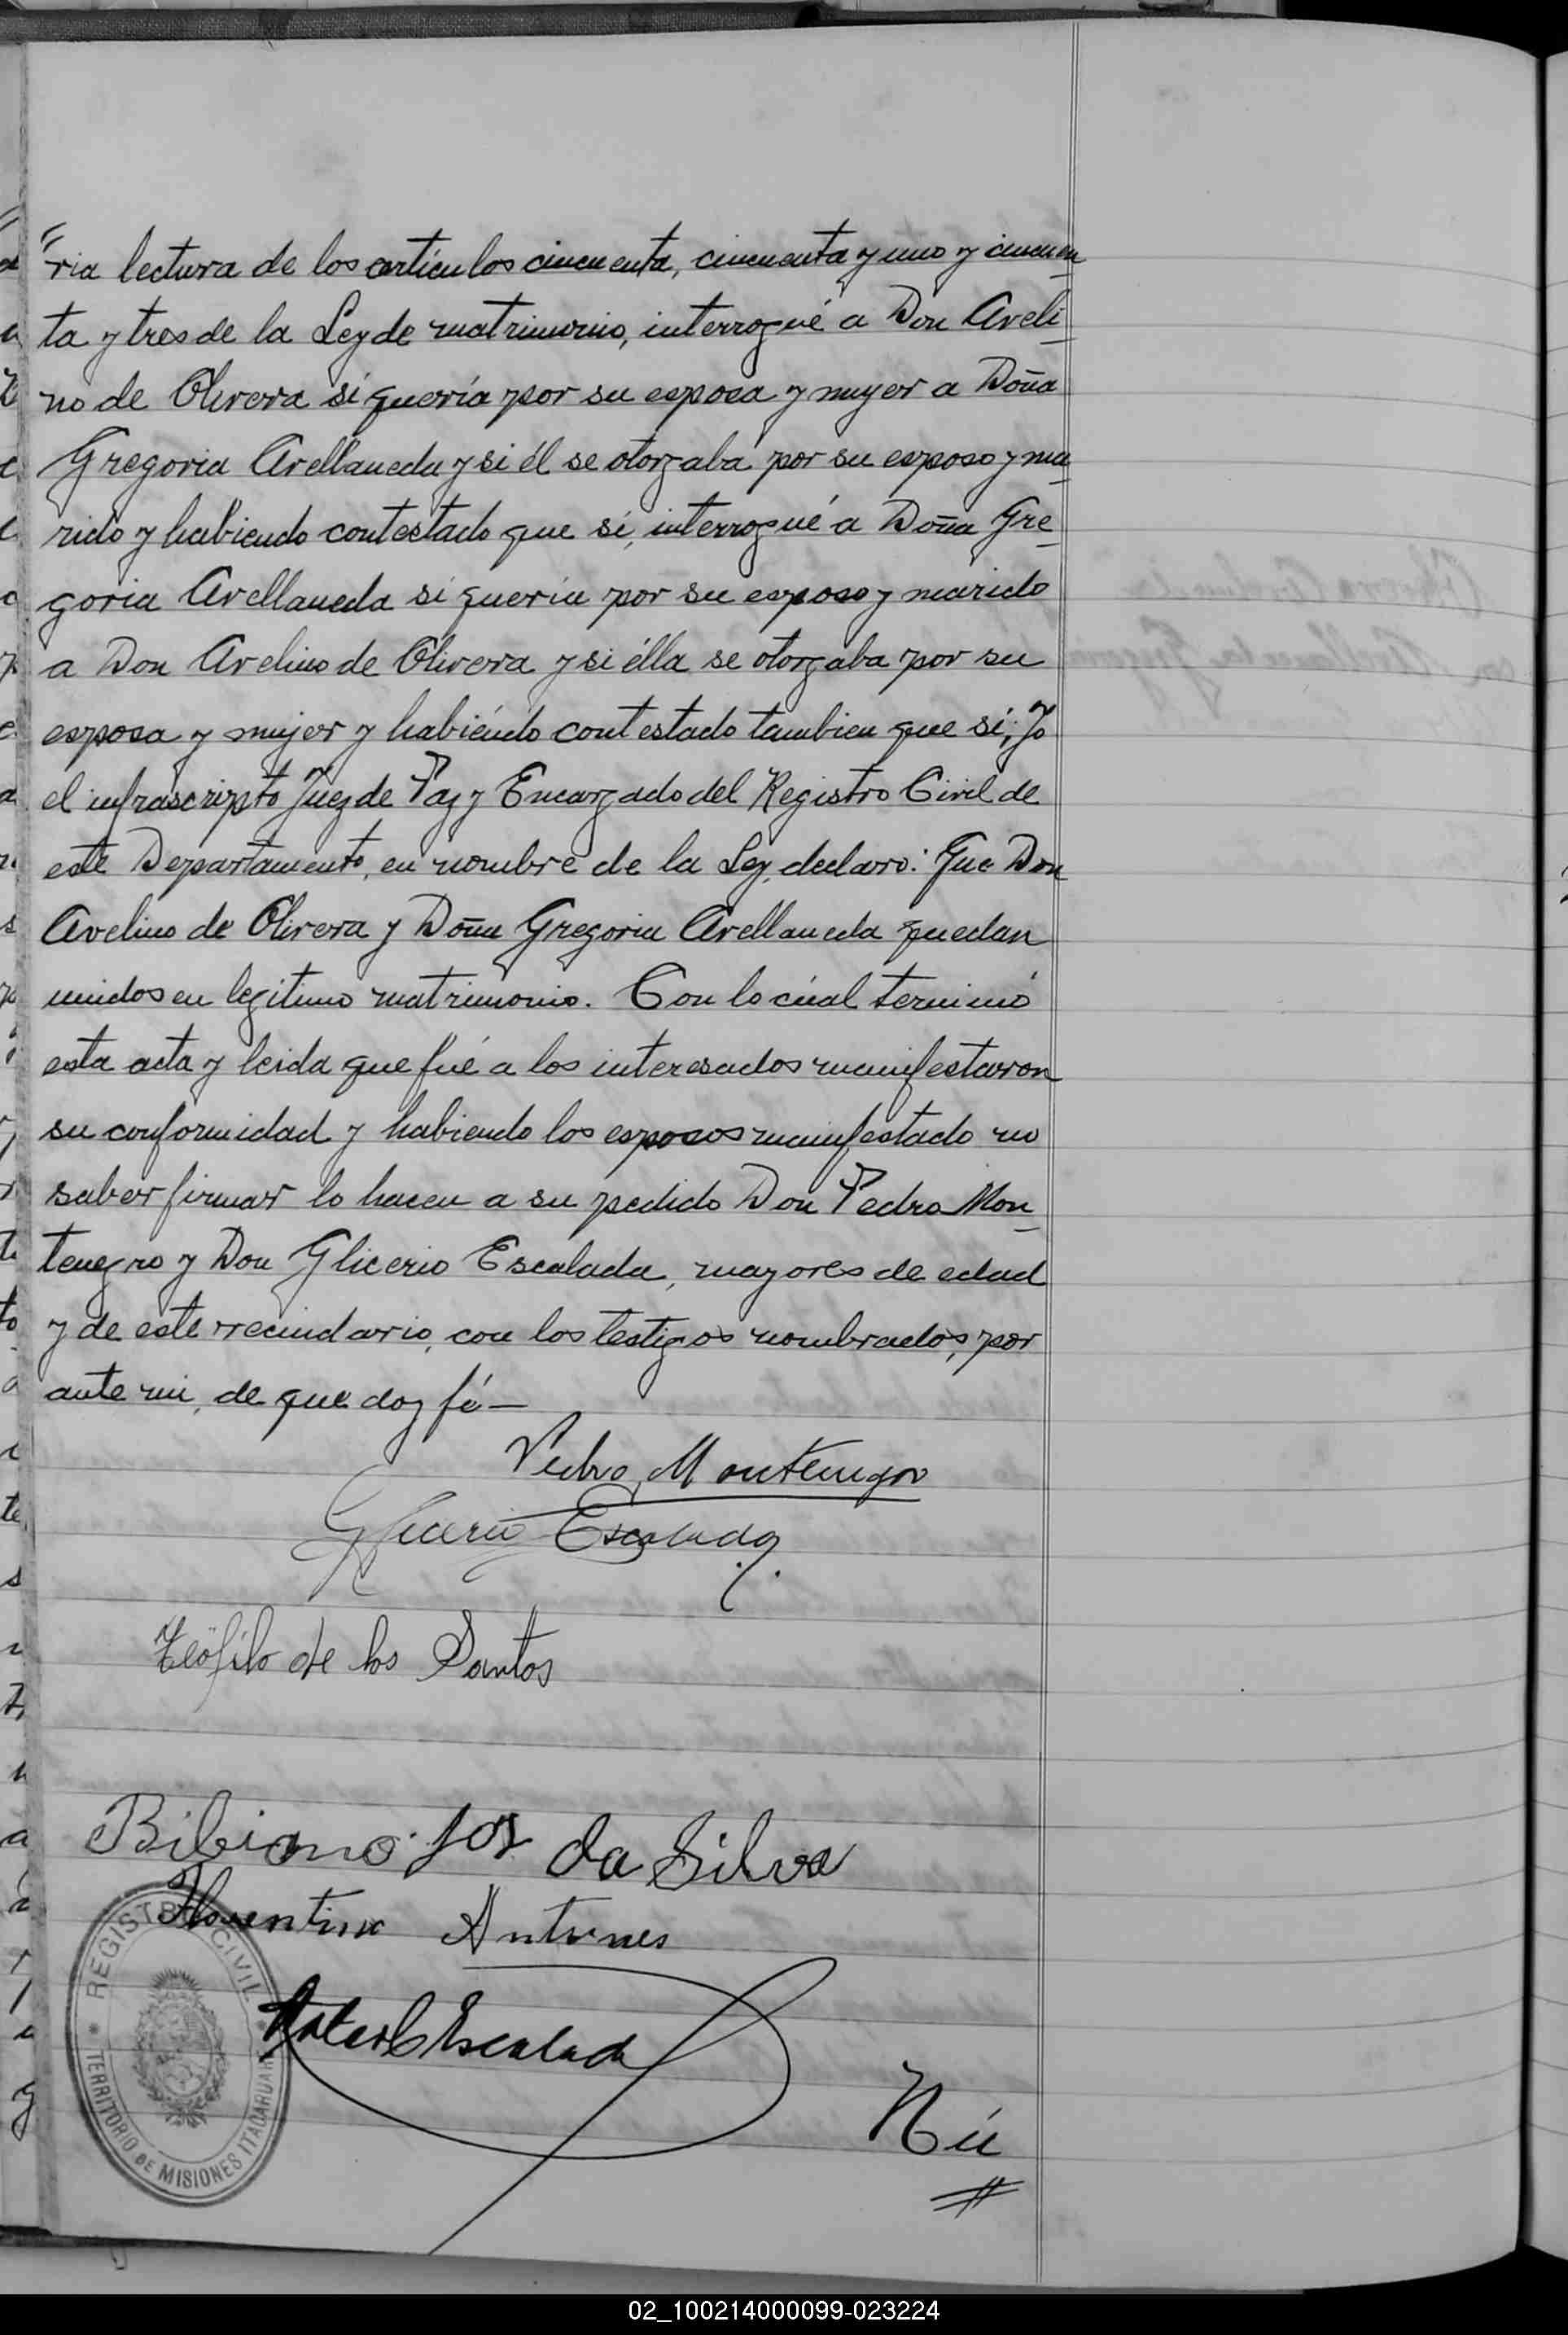 "ria lectura de los artículos cincuenta, cincuenta y uno y cincuen
ta y tres de la Ley de matrimonio, interrogué a Don Aveli
no de Olivera si quería por su esposa y mujer a Doña
Gregoria Avellaneda y si él se otorgaba por su esposo y ma
rido y habiendo contestado que si, interrogué a Doña Gre
goria Avellaneda si quería por su esposo y marido
a Don Avelino de Olivera y si élla se otorgaba por su
esposa y mujer y habiéndo contestado tambien que si; Yo
el infrascripto Juez de Paz y Encargado del Registro Civil de
este Departamento, en nombre de la Ley, declaro: Que Don
Avelino de Olivera y Doña Gregoria Avellaneda quedan
unidos en legitimo matrimonio. Con lo cúal terminó
esta acta y leida que fué a los interesados manifestaron
su conformidad y habiendo los esposos manifestado no
saber firmar lo hacen a su pedido Don Pedro Mon
tenegro y Don Glicerio Escalada, mayores de edad
y de este vecindario, con los testigos nombrados, por
ante mi, de que doy fé—
Pedro Montenegro
Glicerio Escalada
Teófilo de los Santos
Bibiano Jos da Silva
Florentino Antunes
Escalada
REGISTRO CIVIL
TERRITORIO DE MISIONES ITACARUARE
02_100214000099-023224